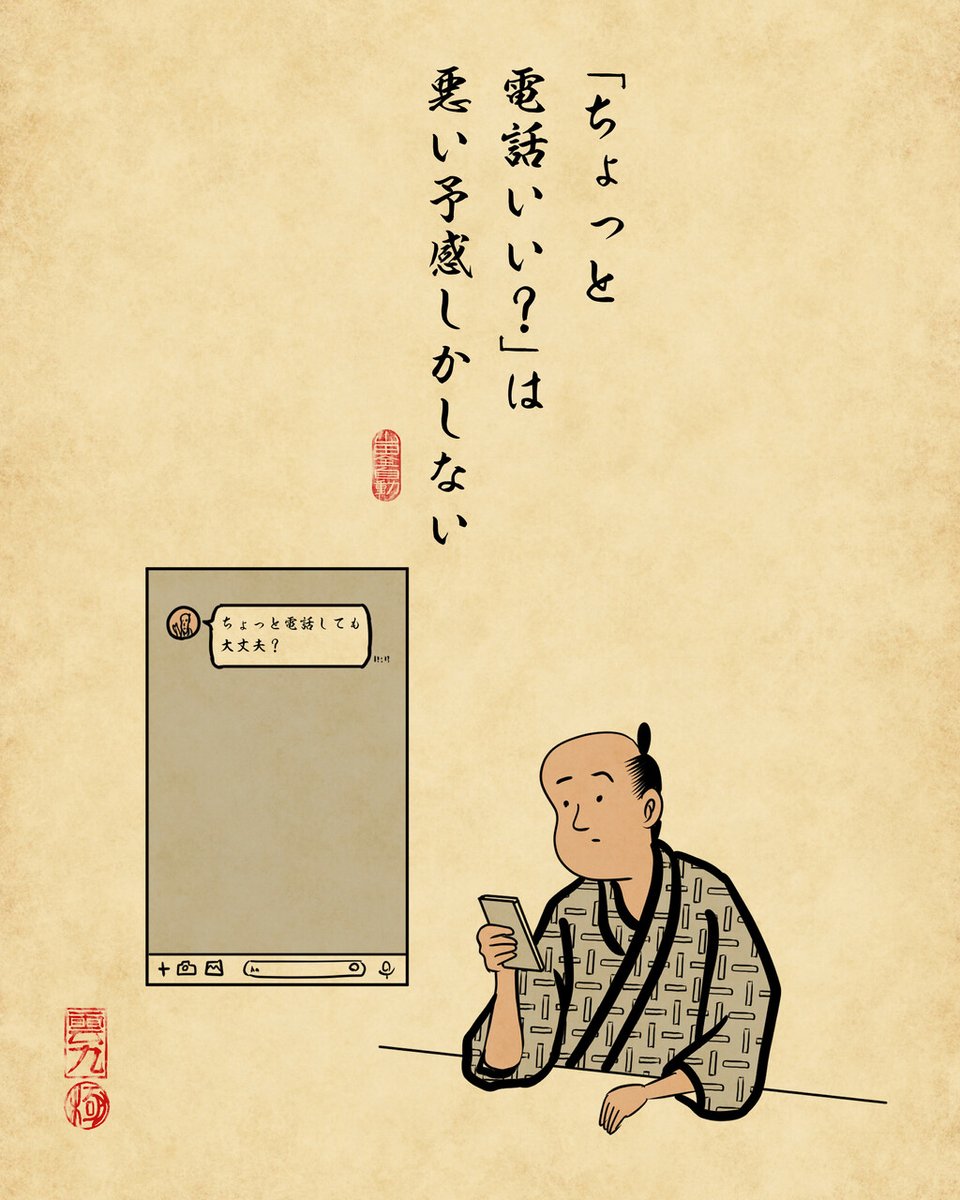 「ちょっと
電話いい?」は
悪い予感しかしない
ちょっと電話しても
大丈夫?